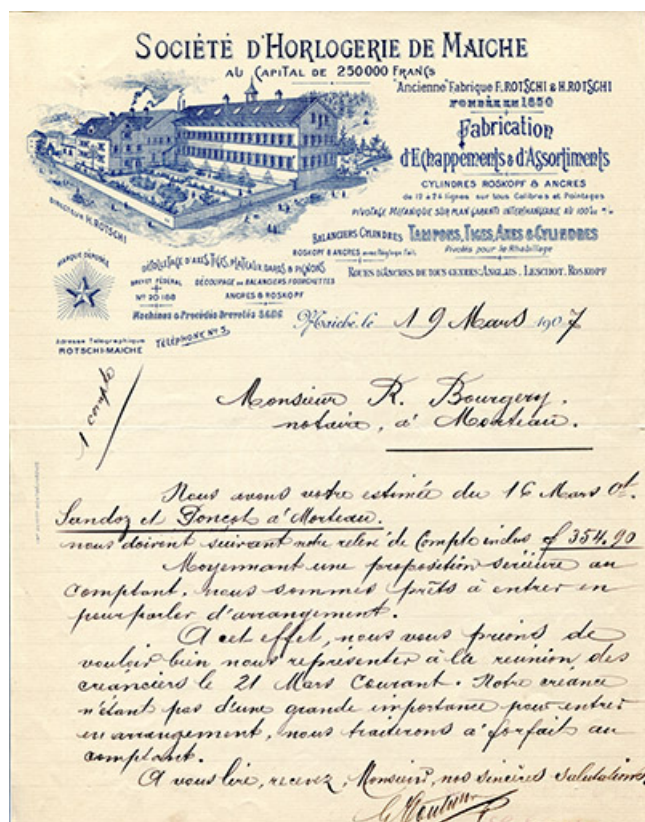 SOCIÉTÉ D'HORLOGERIE DE MAICHE
AU CAPITAL DE 250000 FRANCS
"Ancienne" Fabrique F. ROTSCHI & H. ROTSCHI
FONDÉE EN 1850
Fabrication
d'Echappements & d'Assortiments
CYLINDRES ROSKOPF & ANCRES
de 10 à 24 lignes sur tous Calibres et Pointages
PIVOTAGE MÉCANIQUE SUR PLAN GARANTI INTERCHANGEABLE AU 100me m/m
BALANCIERS CYLINDRES
ROSKOPF & ANCRES avec
TAMPONS, TIGES, AXES & CYLINDRES
Pivotés pour le Rhabillage
ROUES D'ANCRES DE TOUS GENRES: ANGLAIS. LESCHOT. ROSKOPF
DIRECTEUR H. ROTSCHI
MARQUE DÉPOSÉE
DÉCOLLETAGE D'AXES, TIGES, PLATEAUX, DARDS & PIGNONS
BREVET FÉDÉRAL
No 20188
DÉCOUPAGE DE BALANCIERS FOURCHETTES
ANCRES & ROSKOPF
Machines & Procédés Brevetés S.G.D.G.
Adresse Télégraphique
ROTSCHI-MAICHE
TÉLÉPHONE No 3
Maiche, le 19 Mars 1907
1 compte
Monsieur R. Bourgery.
notaire, à Morteau.
Nous avons votre estimée du 16 Mars Ct.
Sandoz et Donçot à Morteau.
nous doivent suivant notre relevé de Compte inclus f 354,90
Moyennant une proposition sérieuse au
comptant, nous sommes prêts à entrer en
pourparler d'arrangement.
A cet effet, nous vous prions de
vouloir bien nous représenter à la réunion des
créanciers le 21 Mars Courant. Notre créance
n'étant pas d'une grande importance pour entrer
en arrangement, nous traiterons à forfait au
comptant.
A vous lire, recevez, Monsieur, nos sincères salutations